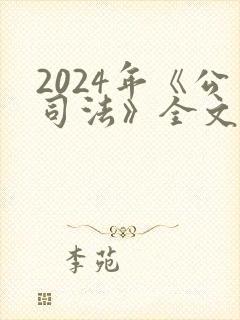 2024年《公
司法》全文
李苑